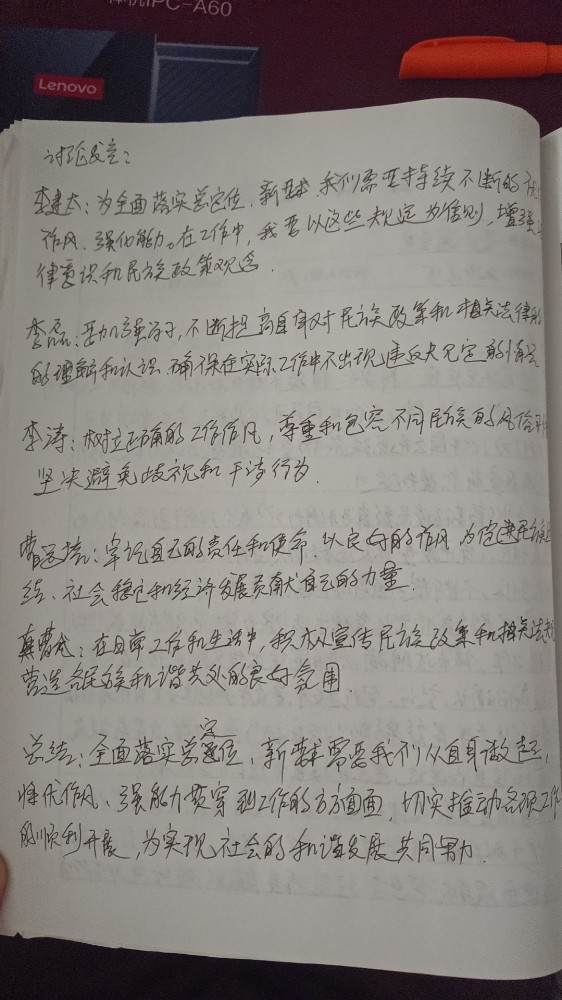 一体机PC-A60
Lenovo
讨论发言：
李建太：为全面落实总定位、新要求，我们需要持续不断的
作风、强化能力。在工作中，我要以这些规定为准则，增强
律意识和民族政策观念.
李磊：要加强学习，不断提高自身对民族政策和相关法律的
的理解和认识，确保在实际工作中不出现违反规定的情况
李涛：树立正确的工作作风，尊重和包容不同民族的风俗
坚决避免歧视和干涉行为.
曹：牢记自己的责任和使命，以良好的作风，为促进民族
结、社会稳定和经济发展贡献自己的力量.
龚：在日常工作和生活中，积极宣传民族政策和相关法
营造各民族和谐共处的良好氛围.
总结：全面落实总定位，新要求需要我们从自身做起，
将优作风、强能力贯穿到工作的方方面面，切实推动各项工作
的顺利开展，为实现社会的和谐发展共同努力.